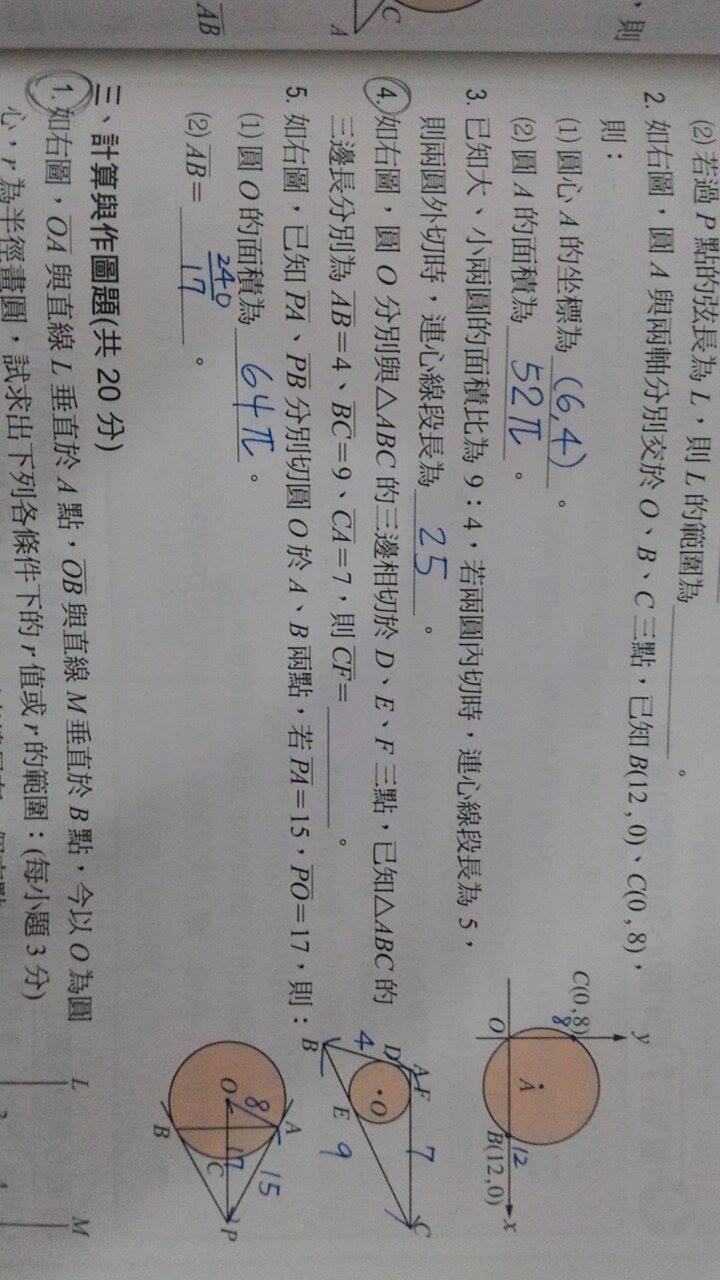 ，則
AB
C
A
(2) 若過 P 點的弦長為 L，則 L 的範圍為________。
2. 如右圖，圓 A 與兩軸分別交於 O、B、C 三點，已知 B(12 , 0)、C(0 , 8)，
則：
(1) 圓心 A 的坐標為 (6,4) 。
(2) 圓 A 的面積為 52π 。
3. 已知大、小兩圓的面積比為 9：4，若兩圓內切時，連心線段長為 5，
則兩圓外切時，連心線段長為 25 。
4. 如右圖，圓 O 分別與△ABC 的三邊相切於 D、E、F 三點，已知△ABC 的
三邊長分別為 AB=4、BC=9、CA=7，則 CF=________。
5. 如右圖，已知 PA、PB 分別切圓 O 於 A、B 兩點，若 PA=15，PO=17，則：
(1) 圓 O 的面積為 64π 。
(2) AB= 240/17 。
y
C(0,8)
8
A
O
12
B(12,0)
x
A
F
D
4
O
7
B
E
9
C
A
15
8
O
17
C
B
P
三、計算與作圖題(共 20 分)
1. 如右圖，OA 與直線 L 垂直於 A 點，OB 與直線 M 垂直於 B 點，今以 O 為圓
心，r 為半徑畫圓，試求出下列各條件下的 r 值或 r 的範圍：(每小題 3 分)
L
M